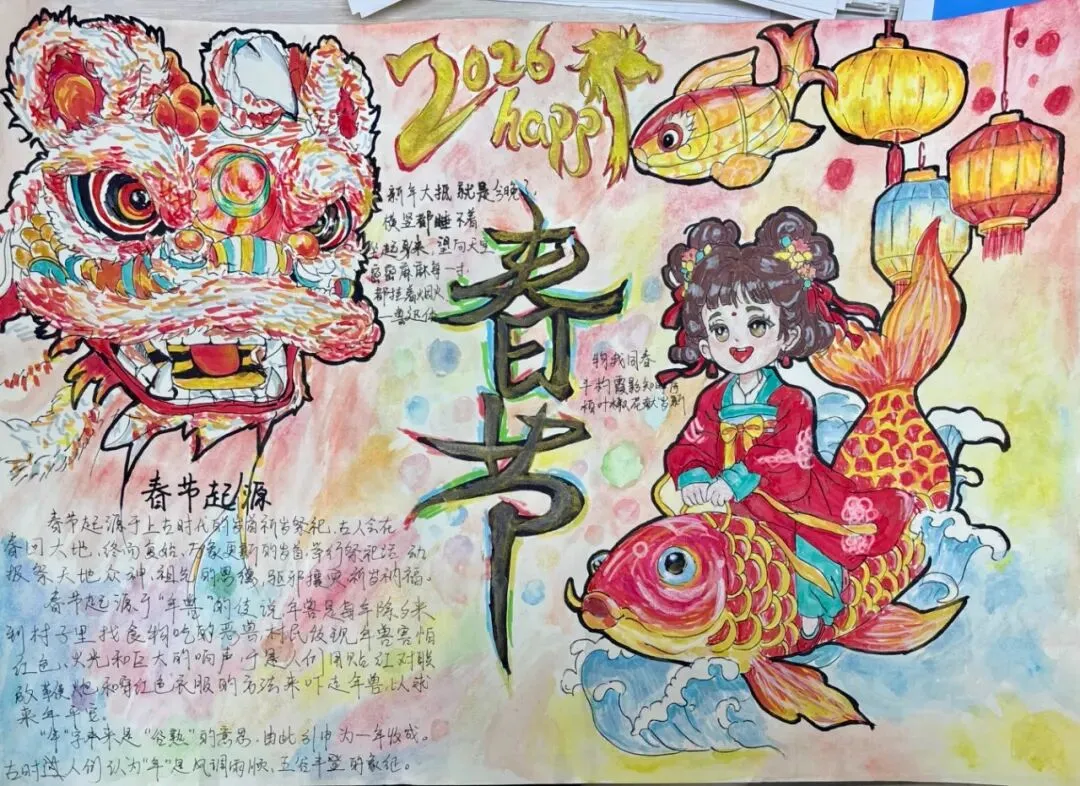 2026
happy
新年大抵就是今晚
横竖都睡不着
坐起身来,望向天空
密密麻麻每一寸
都挂着烟火
春节
物我同春
千枸霞影知
颂叶椒花献岁新
春节起源
春节起源于上古时代的岁首祈岁祭祀,古人会在
春回大地、终而复始、万象更新的岁首,举行祭祀活动
报祭天地众神、祖先的恩德,驱邪攘灾、祈岁纳福。
春节起源于“年兽”的传说年兽是每年除夕来
到村子里找食物吃的恶兽村民发现年兽害怕
红色、火光和巨大的响声,于是人们用贴红对联
放鞭炮和穿红色衣服的方法来吓走年兽,以求
来年平安。
“年”字本来是“谷熟”的意思,由此引申为一年收成。
古时人们认为“年”是风调雨顺,五谷丰登的象征。